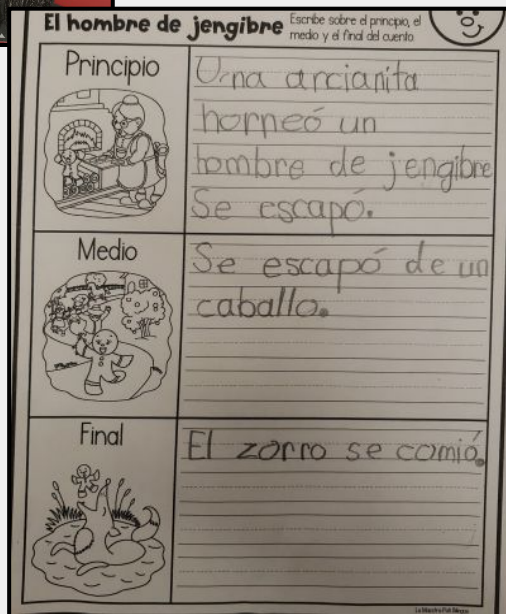 El hombre de jengibre
Escribe sobre el principio, el
medio y el final del cuento.
Principio
Una ancianita
horneó un
hombre de jengibre
Se escapó.
Medio
Se escapó de un
caballo.
Final
El zorro se comió.
La Maestra Pati Megna